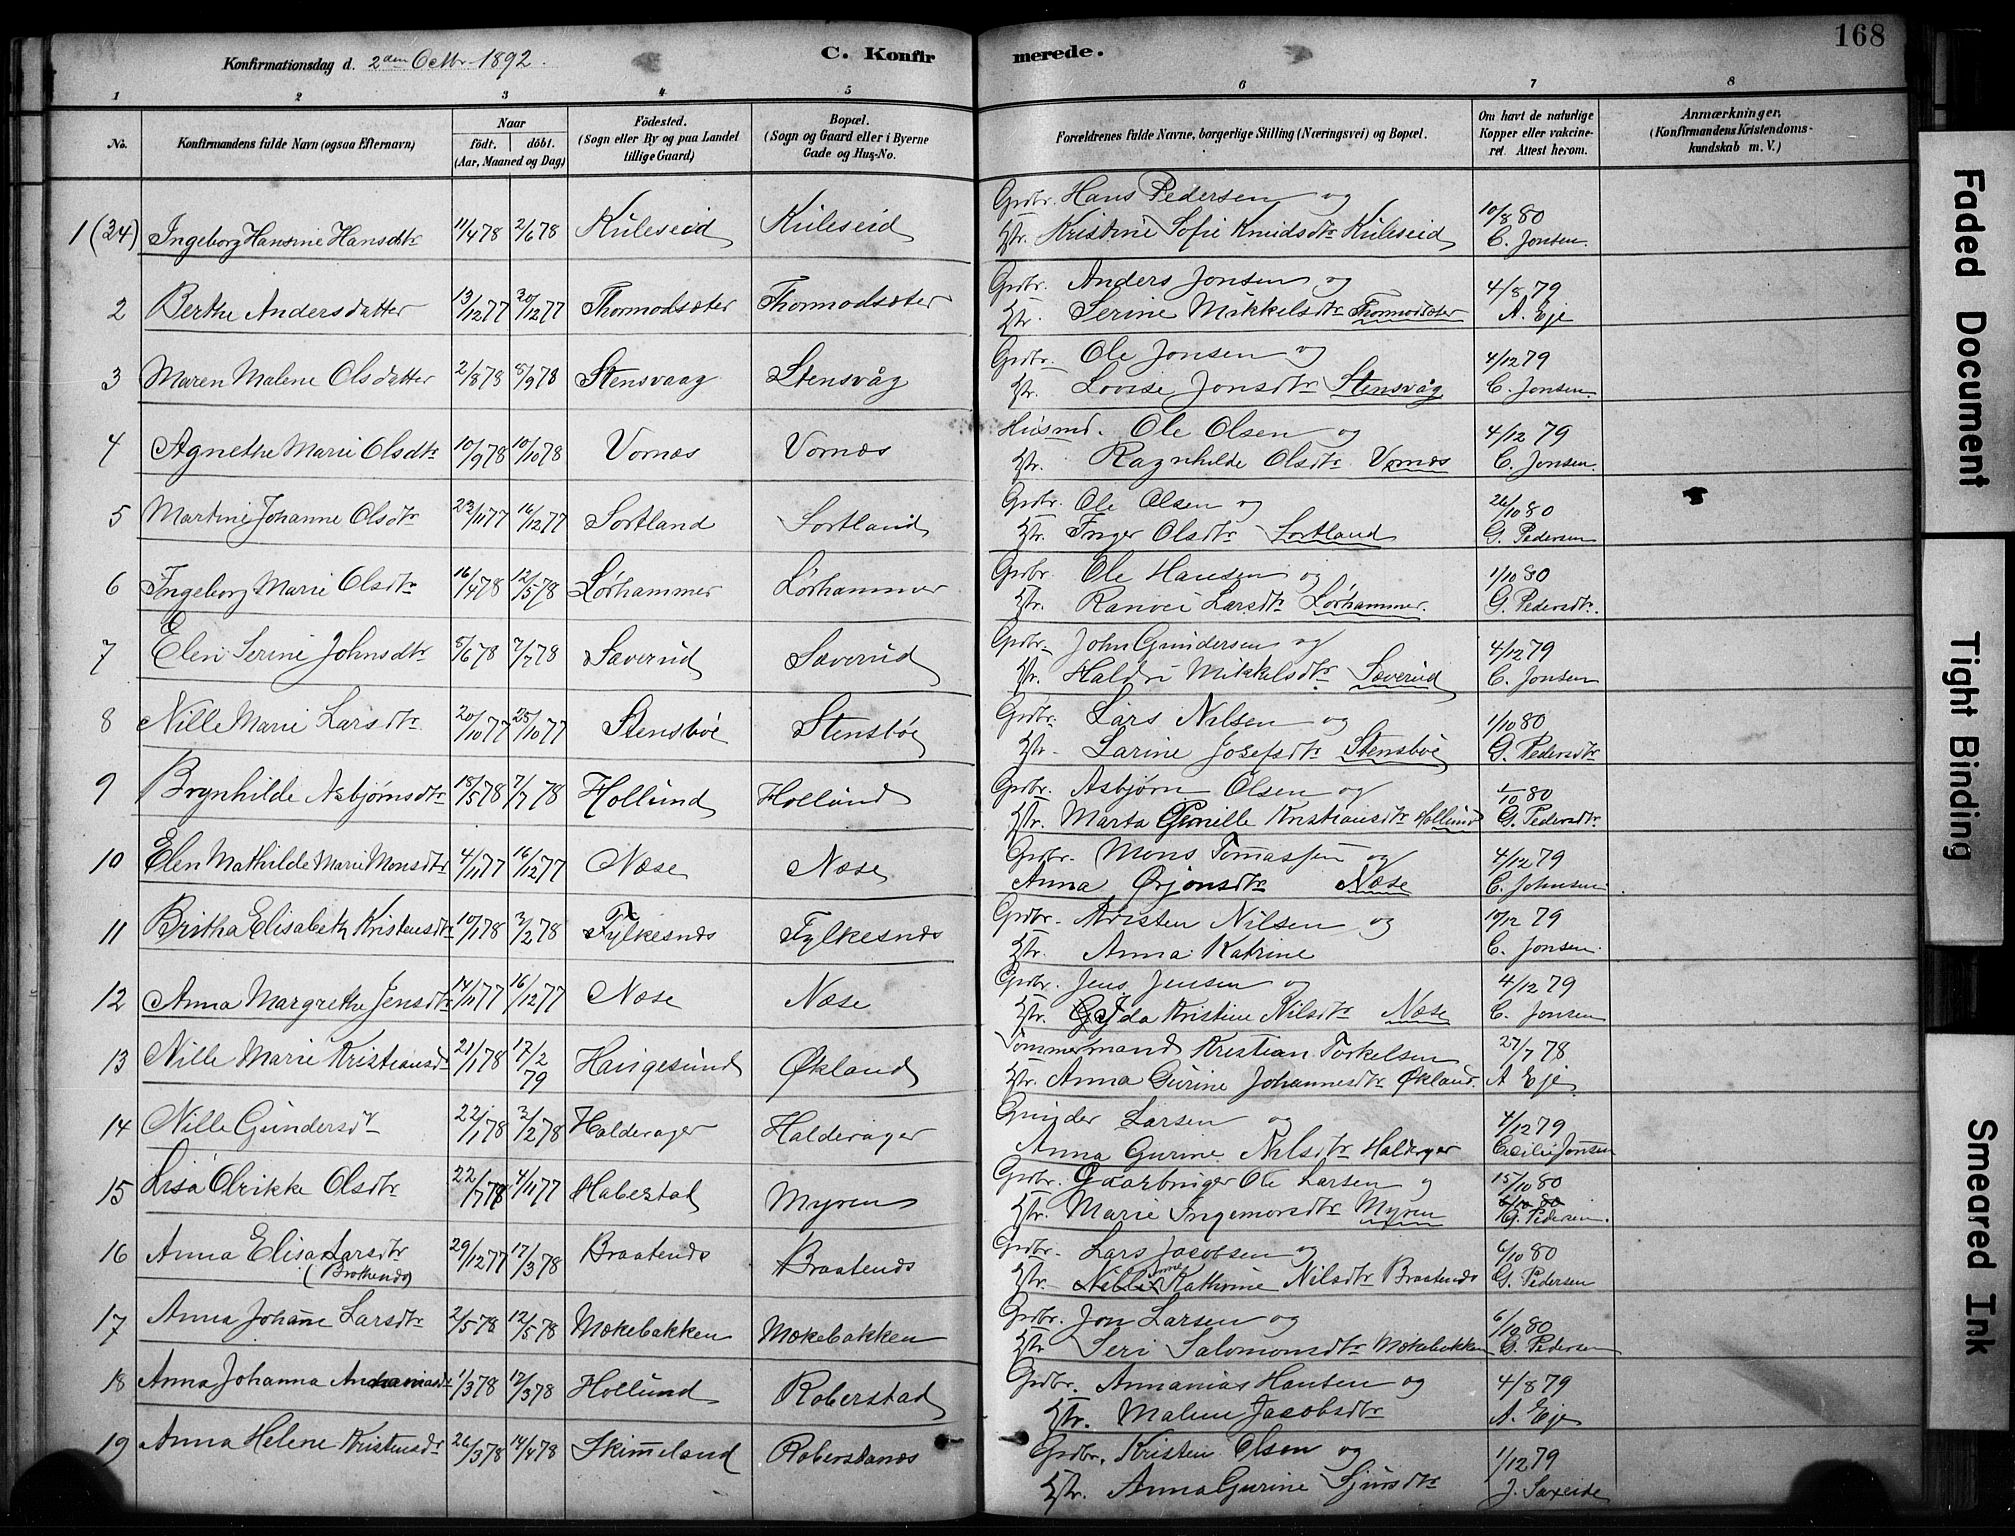 168
Konfirmationsdag d. 2den Octbr 1892.
C. Konfirmerede.
1 2 3 4 5 6 7 8
No.
Konfirmandens fulde Navn (ogsaa Efternavn)
Naar
født. døbt.
(Aar, Maaned og Dag)
Fødested.
(Sogn eller By og paa Landet
tillige Gaard)
Bopæl.
(Sogn og Gaard eller i Byerne
Gade og Hus-No.
Forældrenes fulde Navne, borgerlige Stilling (Næringsvei) og Bopæl.
Om havt de naturlige
Kopper eller vakcineret. Attest herom.
Anmærkninger.
(Konfirmandens Kristendomskundskab m. V.)
1 (34) Ingeborg Hansine Hansdtr 11/4 78 2/6 78 Kuleseid Kuleseid Grdbr. Hans Pedersen og 10/8 80
Hstr. Kristine Sofie Knudsdtr Kuleseid C. Jonsen
2 Berthe Andersdatter 13/12 77 30/12 77 Thormodsæter Thormodsæter Grdbr. Anders Jonsen og 4/8 79
Hstr. Serine Mikkelsdtr Thormodsæter A. Eje
3 Maren Malene Olsdatter 2/8 78 8/9 78 Stensvaag Stensvåg Grdbr. Ole Jonsen og 4/12 79
Hstr. Lovise Jonsdtr Stensvåg C. Jonsen
4 Agnethe Marie Olsdtr 10/9 78 10/10 78 Vornæs Vornæs Husmd. Ole Olsen og 4/12 79
Hstr. Ragnhilde Olsdtr Vornæs C. Jonsen
5 Martine Johanne Olsdtr 22/11 77 16/12 77 Sortland Sortland Grdbr. Ole Olsen og 26/10 80
Hstr. Inger Olsdtr Sortland G. Pedersen
6 Ingeborg Marie Olsdtr 16/4 78 12/5 78 Lørhammer Lørhammer Grdbr. Ole Hansen og 1/10 80
Hstr. Ranvei Larsdtr Lørhammer. G. Pedersdtr.
7 Elen Serine Johnsdtr 5/6 78 7/7 78 Sæverud Sæverud Grdbr. John Gundersen og 4/12 79
Hstr. Haldri Mikkelsdtr Sæverud C. Jonsen
8 Nille Marie Larsdtr 20/10 77 25/10 77 Stensbøe Stensbøe Grdbr. Lars Nilsen og 1/10 80
Hstr. Larine Josefsdtr Stensbøe G. Pedersdtr
9 Brynhilde Asbjørnsdtr 18/5 78 7/7 78 Hollund Hollund Grdbr. Asbjørn Olsen og 1/10 80
Hstr. Marta Gunille Kristiansdtr Hollund G. Pedersdtr.
10 Elen Mathilde Marie Monsdtr 4/11 77 16/12 77 Næse Næse Grdbr. Mons Tomassen og 4/12 79
Anna Ørjansdtr Næse C. Johnsen
11 Britha Elisabeth Kristensdtr 10/1 78 3/2 78 Fylkesnæs Fylkesnæs Grdbr. Kristen Nilsen og 10/12 79
Hstr. Anna Katrine C. Jonsen
12 Anna Margrethe Jensdtr 14/11 77 16/12 77 Næse Næse Grdbr. Jens Jensen og 4/12 79
Hstr. Ida Kristine Nilsdtr Næse C. Jonsen
13 Nille Marie Kristiansdtr 21/1 78 17/2 79 Haugesund Økland Tømmermand Kristian Torkelsen 27/7 78
Hstr. Anna Gurine Johannesdtr Økland. A Eje
14 Nille Gundersdtr 22/1 78 3/2 78 Halderager Halderager Gunder Larsen og 4/12 79
Anna Gurine Nilsdtr Halderager Cecilie Jonsen
15 Lisa Olrikke Olsdtr 22/7 77 4/11 77 Haberstad Myren Grdbr. Gaarbruger Ole Larsen og 15/10 80
Hstr. Marie Ingemorsdtr Myren 6/10 80 G. Pedersen.
16 Anna Elisa Larsdtr 29/12 77 17/3 78 Braatenæs Braatenæs Grdbr. Lars Jacobsen og 6/10 80
(Brotenæs) Hstr. Nille Anne Kathrine Nilsdtr Braatenæs G. Pedersen
17 Anna Johanne Larsdtr 2/5 78 12/5 78 Mækebakken Mækebakken Grdbr. Jon Larsen og 6/10 80
Hstr. Seri Salomonsdtr Mækebakken G. Pedersen
18 Anna Johanna Ananiasdtr 1/3 78 17/3 78 Hollund Roberstad Grdbr. Annanias Hansen og 4/8 79
Hstr. Malene Jacobsdtr A. Eje
19 Anna Helene Kristensdtr 26/3 78 14/4 78 Skimmeland Roberstanæs Grdbr. Kristen Olsen og 1/12 79
Hstr. Anna Gurine Sjursdtr J. Saxeide
Faded Document
Tight Binding
Smeared Ink